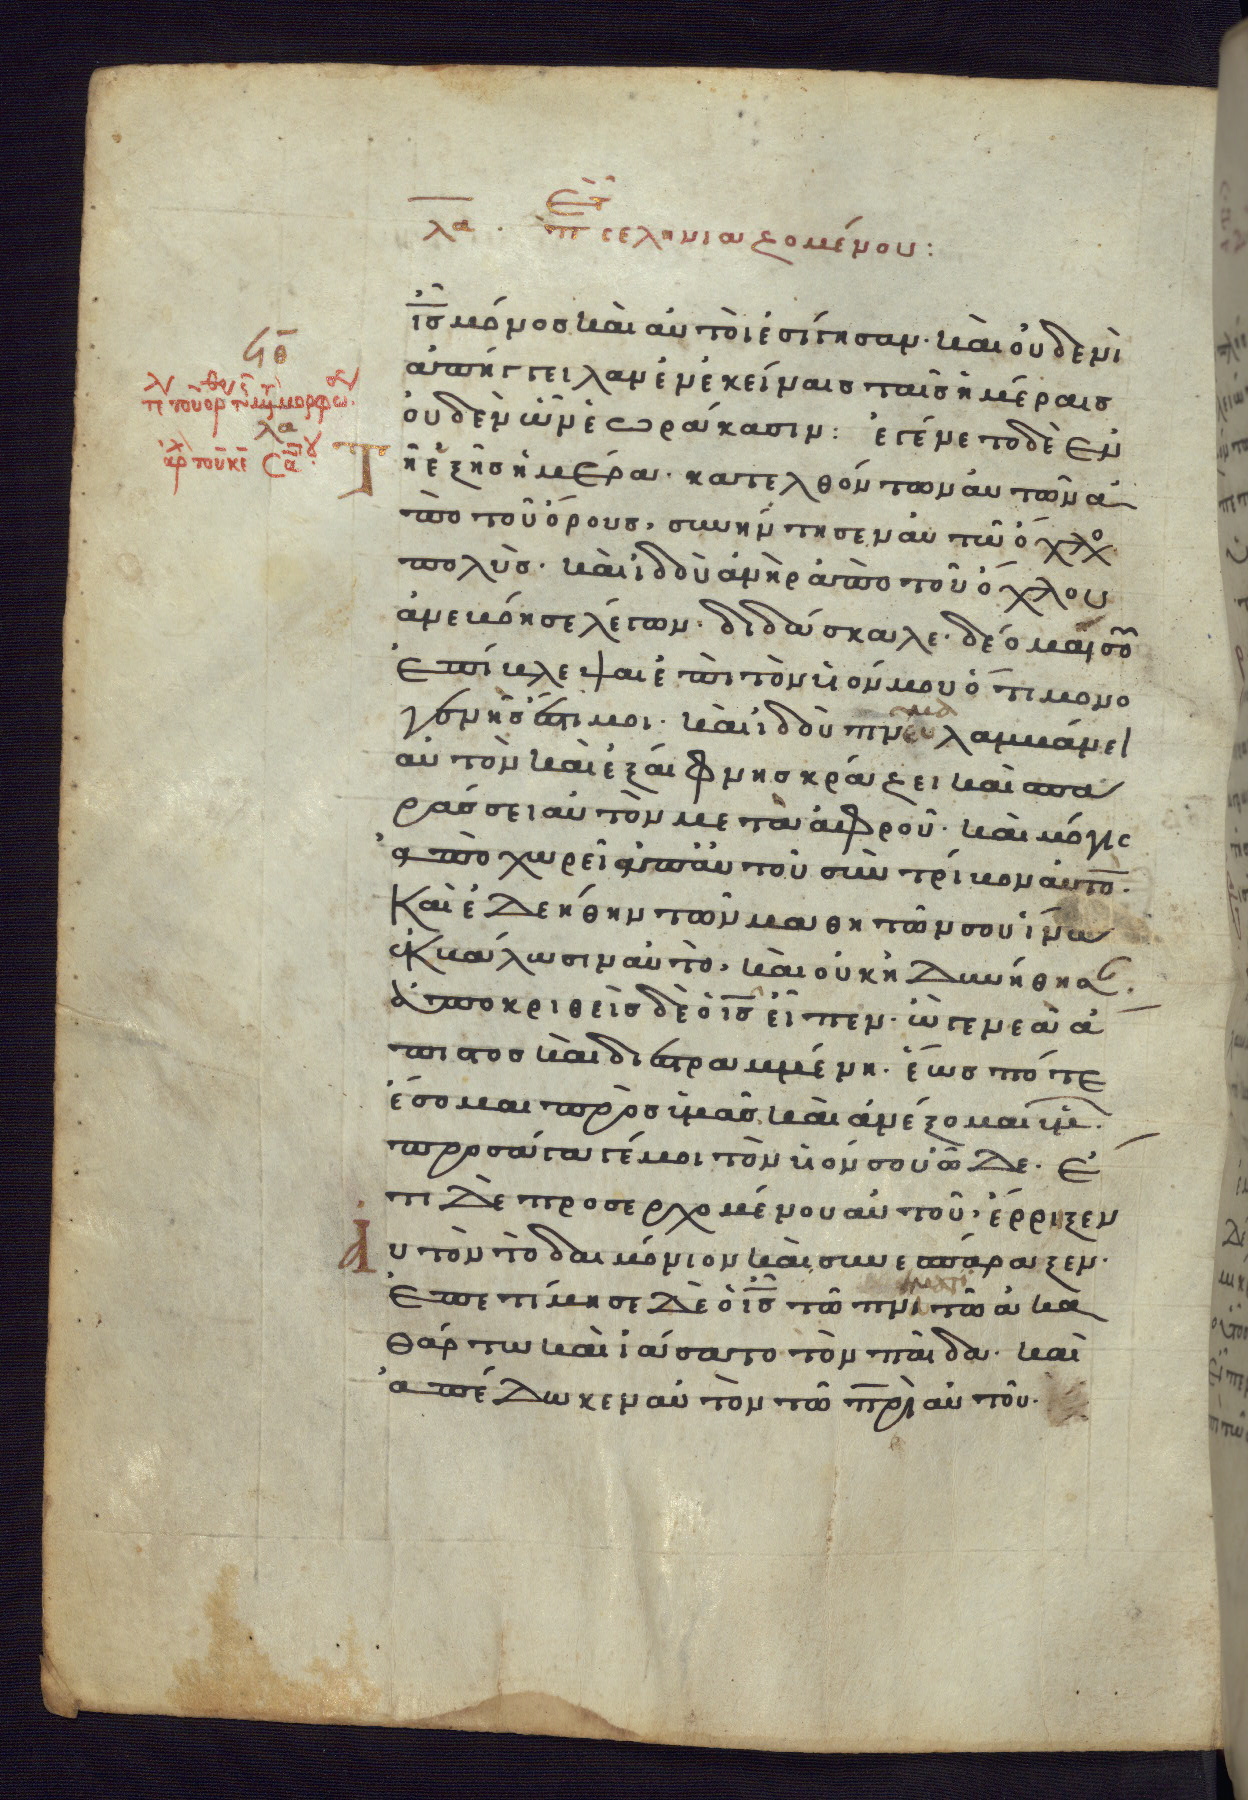 λα. σεληνιαζομένου:
ις μόνος καὶ αὐτοὶ ἐσίγησαν. καὶ οὐδενὶ
ἀπήγγειλαν ἐν ἐκείναις ταῖς ἡμέραις
οὐδὲν ὧν ἑωράκασιν: ἐγένετο δὲ ἐν
Τῆ ἑξῆς ἡμέρα. κατελθόντων αὐτῶν ἀ
πὸ τοῦ ὄρους, συνήντησεν αὐτῶ ὄχλο
πολὺς. καὶ ἰδοὺ ἀνὴρ ἀπὸ τοῦ ὄχλου
ἀνεβόησε λέγων. διδάσκαλε. δέομαί σου
ἐπίβλεψαι ἐπὶ τὸν υἱόν μου ὅτι μονο
γενής ἐστι μοι. καὶ ἰδοὺ πνα λαμβάνει
αὐτὸν καὶ ἐξαίφνης κράζει καὶ σπα
ράσσει αὐτὸν μετὰ ἀφροῦ. καὶ μόγις
ἀποχωρεῖ ἀπ αὐτοῦ συντρίβον αὐτο.
Καὶ ἐδεήθην τῶν μαθητῶν σου ἵνα
ἐκβάλωσιν αὐτὸ, καὶ οὐκ ἠδυνήθησ.
ἀποκριθεὶς δὲ ὁ ις εἶπεν. ὦ γενεὰ ἄ
πιστος καὶ διεστραμμένη. ἕως πότε
ἔσομαι πρὸς ὑμᾶς καὶ ἀνέξομαι ὑμ.
προσάγαγέ μοι τὸν υἱόν σου ὧδε. ἔ
τι δὲ προσερχομένου αὐτοῦ, ἔρρηξεν
Αυτὸν τὸ δαιμόνιον καὶ συνεσπάραξεν.
Ἐπετίμησε δὲ ὁ ις τῶ πνι τῶ ἀκα
θάρτω καὶ ἰάσατο τὸν παῖδα. καὶ
ἀπέδωκεν αὐτὸν τῶ πρι αὐτοῦ.